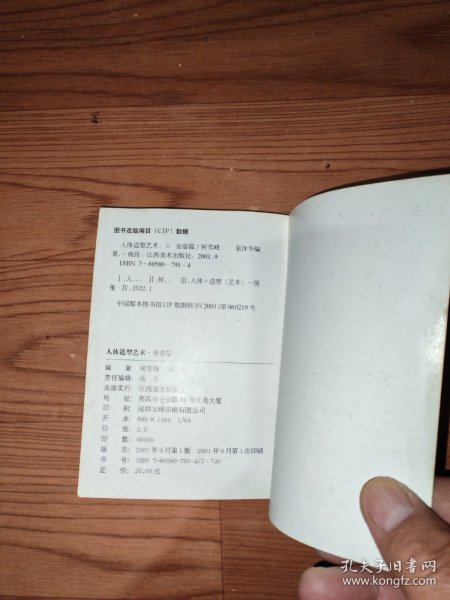 图书在版编目(CIP)数据
人体造型艺术.3.坐姿篇/何雪峰 张沐华编
著.—南昌:江西美术出版社.2001.9
ISBN 7-80580-791-4
Ⅰ.人… Ⅱ.何… Ⅲ.人体—造型(艺术)—图
集 Ⅳ.J522.1
中国版本图书馆CIP数据核字(2001)第060219号
人体造型艺术·坐姿篇
编 著 何雪峰
责任编辑
出版发行/江西美术出版社
地 址/南昌市子安路66号江美大厦
印 刷/深圳宝峰印刷有限公司
开 本/889×1194 1/64
印 张/2.5
印 数/30000
版 次/2001年9月第1版 2001年9月第1次印刷
书 号/ISBN 7-80580-791-4/J·746
定 价/20.00元
孔夫子旧书网
www.kongfz.com